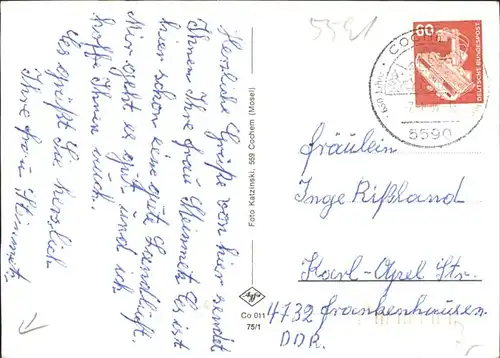 5591
Herzliche Grüße von hier sendet
Ihnen Ihre frau Steinmetz Es ist
hier schon eine gute Landluft.
Mir geht es gut und ich
hoffe Ihnen auch.
Es grüßt Sie herzlich
Ihre frau Steinmetz
Foto Katzinski, 559 Cochem (Mosel)
Agfa
Co 011
75/1
60
DEUTSCHE BUNDESPOST
COCHEM
650 Jahre
5590
fräulein
Inge Rißland
Karl-Apel Str.
4732 frankenhausen
DDR.